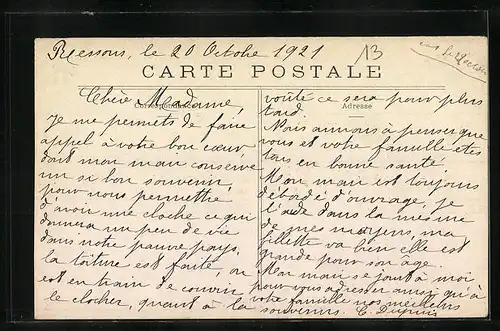 Ressons, le 20 Octobre 1921
13
CARTE POSTALE
Correspondance
Adresse
Chère Madame,
je me permets de faire
appel à votre bon cœur
dont mon mari conserve
un si bon souvenir
pour nous permettre
d'avoir une cloche ce qui
donnera un peu de vie
dans notre pauvre pays,
la toiture est faite, on
est en train de couvrir
le clocher, quant à la
voûte ce sera pour plus
tard.
Nous aimons à penser que
vous et votre famille êtes
tous en bonne santé
Mon mari est toujours
débordé d'ouvrage, je
l'aide dans la mesure
de mes moyens, ma
fillette va bien elle est
grande pour son âge.
Mon mari se joint à moi
pour vous adresser ainsi qu'à
votre famille nos meilleurs
souvenirs. C. Dupuis